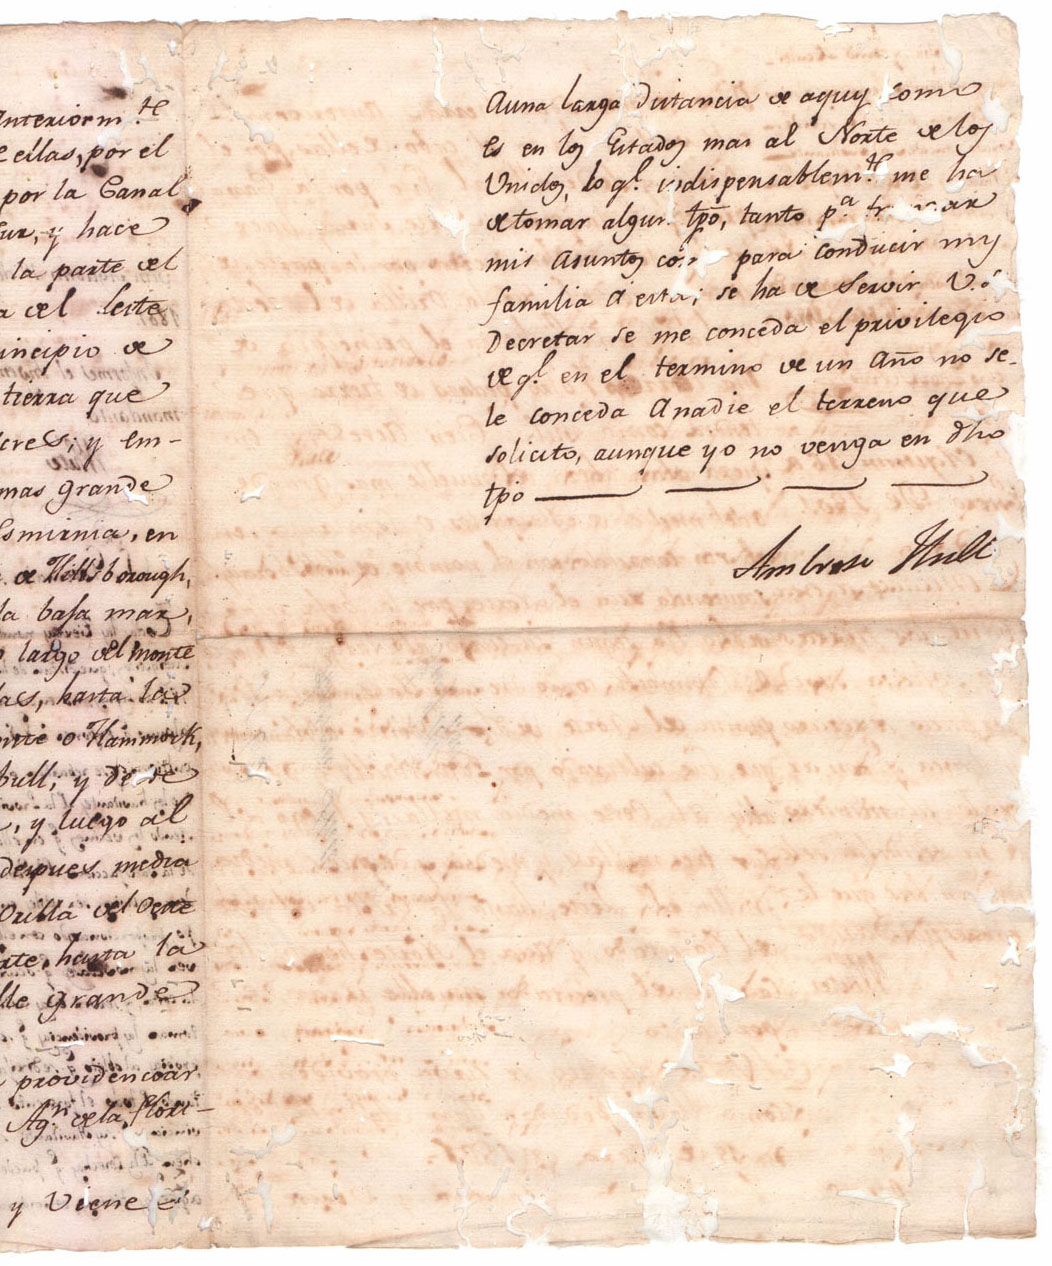 Anteriorm.te
e ellas, por el
por la Canal
sur, y hace
la parte del
a del leste
incipio de
tierra que
cres; y em-
mas grande
Esmirnia, en
de Hillsborough,
la baja mar,
largo del monte
las, hasta la
onte o Hammock,
bull, y desde
, y luego al
despues media
Orilla del Oeste
rte, hasta la
lle grande
providenciar
Ag.n de la Flori-
y Viene
Auna larga distancia de aquy como
Es en los Estados mas al Norte de los
Unidos, lo ql. indispensablem.te me ha
de tomar algun tpō, tanto p.a
mis Asuntos como para conducir my
familia a esta; se ha de Servir V.S
Decretar se me conceda el privilegio
de ql. en el termino de un Año no se-
le conceda Anadie el terreno que
solicito, aunque yo no venga en dho
tpō
Ambrose Hull